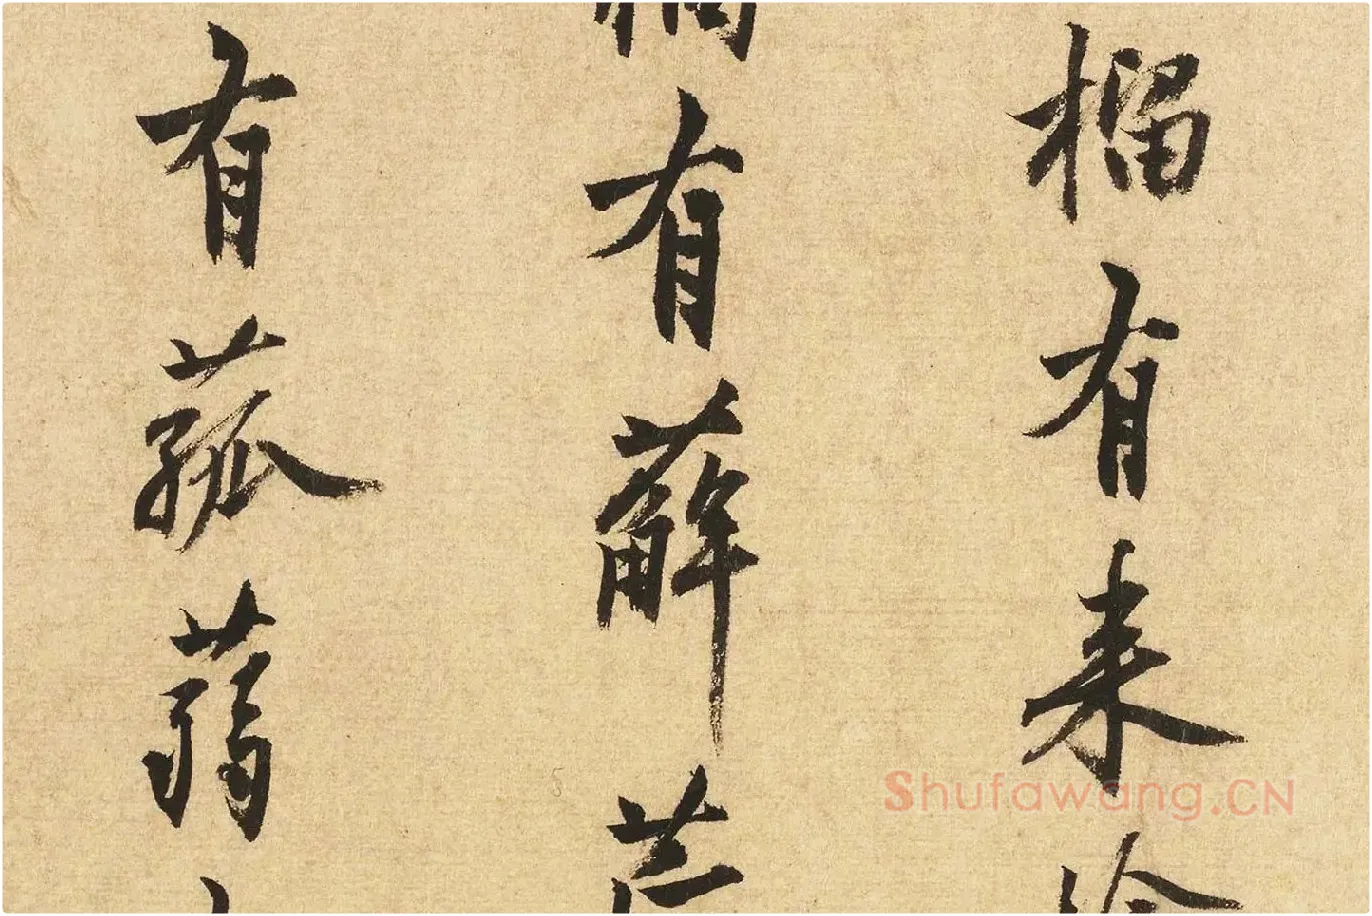 榴有来
有薢
有菰蒻
Shufawang.CN